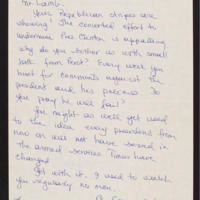 Mr. Lamb.
Your Republican stripes are
showing! The concerted effort to
undermine Pres Clinton is appalling
Why do you bother us with small
talk from Print? Every week you
hunt for comments against the
president and his process. Do
you pray he will fail?
You might as well get used
to the idea every president from
now on will not have served in
the armed services Times have
changed
Get with it. I used to watch
you regularly no more.